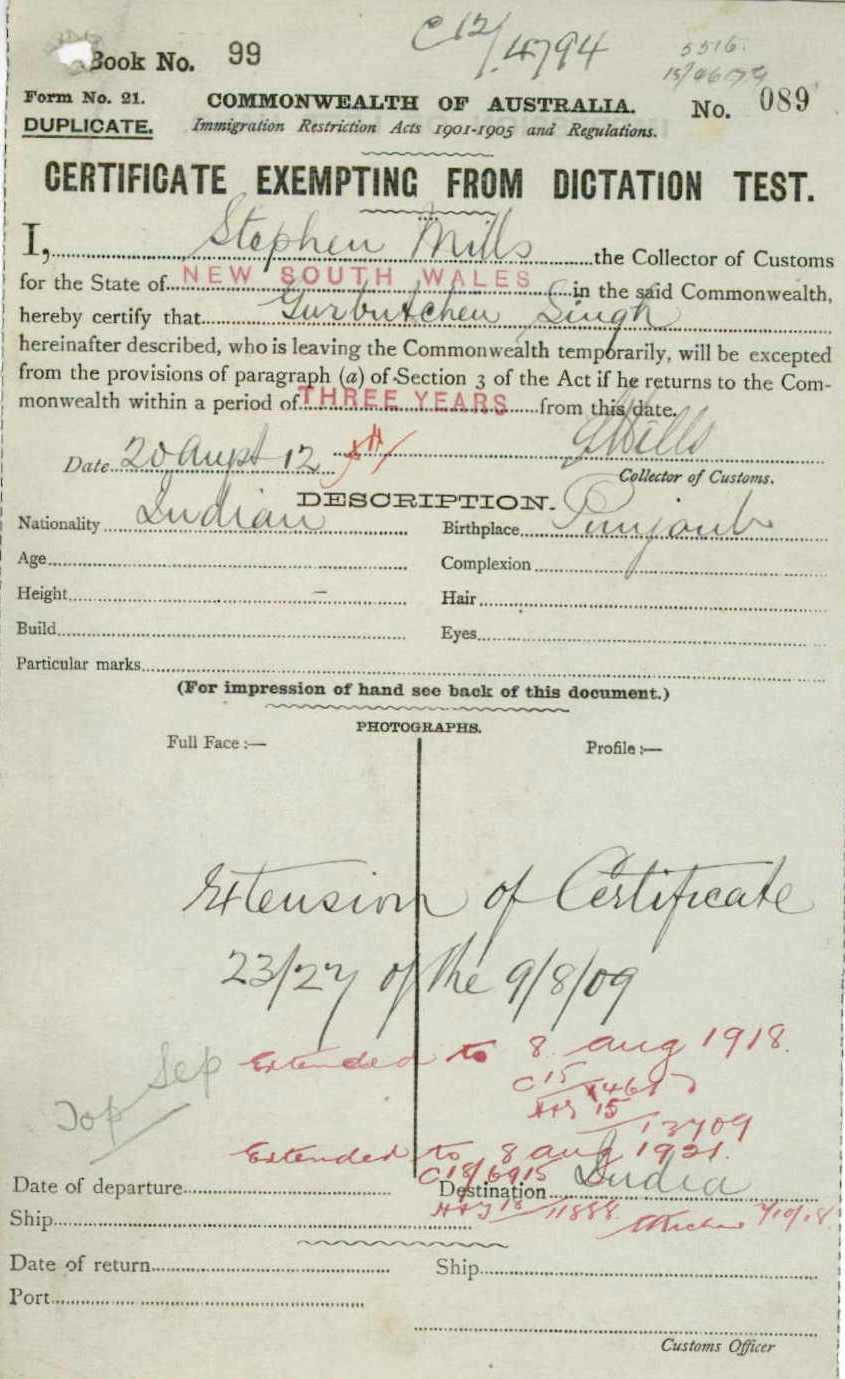 Book No. 99
C 12/4794
5516.
Form No. 21.
DUPLICATE.
COMMONWEALTH OF AUSTRALIA.
Immigration Restriction Acts 1901-1905 and Regulations.
No. 089
CERTIFICATE EXEMPTING FROM DICTATION TEST.
I, Stephen Mills the Collector of Customs
for the State of NEW SOUTH WALES in the said Commonwealth,
hereby certify that Gurbutchen Singh
hereinafter described, who is leaving the Commonwealth temporarily, will be excepted
from the provisions of paragraph (a) of Section 3 of the Act if he returns to the Com-
monwealth within a period of THREE YEARS from this date.
Date 20 Augst 12 SMills
Collector of Customs.
DESCRIPTION.
Nationality Indian Birthplace Punjaub
Age Complexion
Height Hair
Build Eyes
Particular marks
(For impression of hand see back of this document.)
PHOTOGRAPHS.
Full Face :— Profile :—
Extension of Certificate
23/27 of the 9/8/09
Extended to 8 aug 1918.
C 15
15/13709
Sep
Top
Extended to 8 aug 1921.
C18/6915
Date of departure Destination India
Ship
18/11888 7/10/18
Date of return Ship
Port
Customs Officer